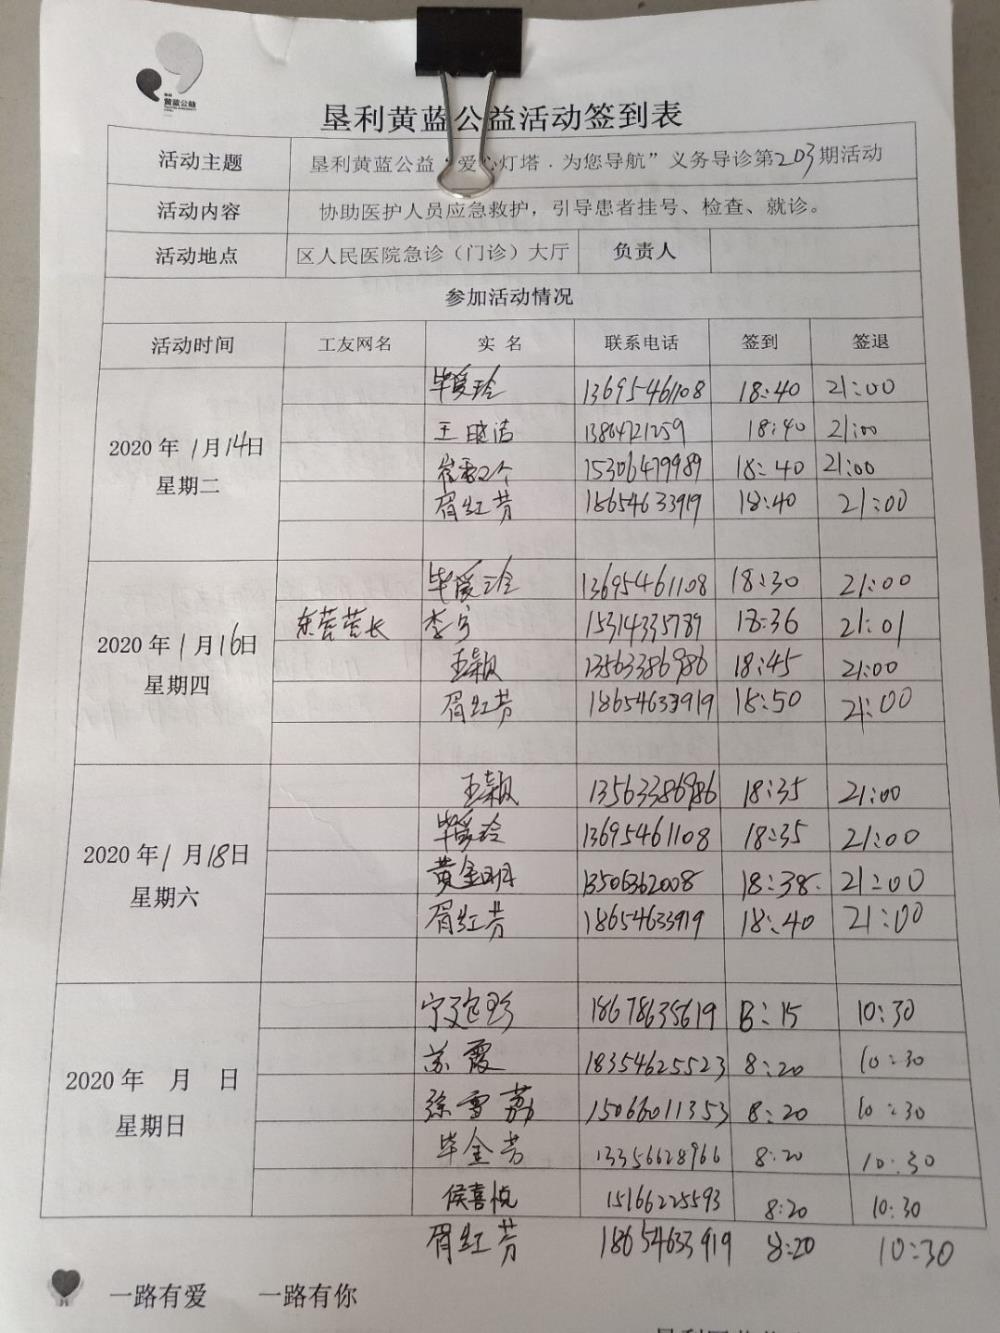 黄蓝公益
垦利黄蓝公益活动签到表
活动主题 垦利黄蓝公益“爱心灯塔．为您导航”义务导诊第203期活动
活动内容 协助医护人员应急救护，引导患者挂号、检查、就诊。
活动地点 区人民医院急诊（门诊）大厅 负责人
参加活动情况
活动时间 工友网名 实 名 联系电话 签到 签退
2020年1月14日 星期二
毕爱玲 13695461108 18:40 21:00
王晓洁 13864721259 18:40 21:00
15306479989 18:40 21:00
胥红芳 18654633919 18:40 21:00
2020年1月16日 星期四
毕爱玲 13695461108 18:30 21:00
东营营长 李宁 15314335789 18:36 21:01
王颖 13563386986 18:45 21:00
胥红芳 18654633919 18:50 21:00
2020年1月18日 星期六
王颖 13563386986 18:35 21:00
毕爱玲 13695461108 18:35 21:00
黄金玥 13506362008 18:38 21:00
胥红芳 18654633919 18:40 21:00
2020年 月 日 星期日
18678635619 8:15 10:30
苏霞 18354625523 8:20 10:30
徐雪荔 15066011353 8:20 10:30
毕金芳 13356628966 8:20 10:30
侯喜悦 15166225593 8:20 10:30
胥红芳 18654633919 8:20 10:30
一路有爱 一路有你